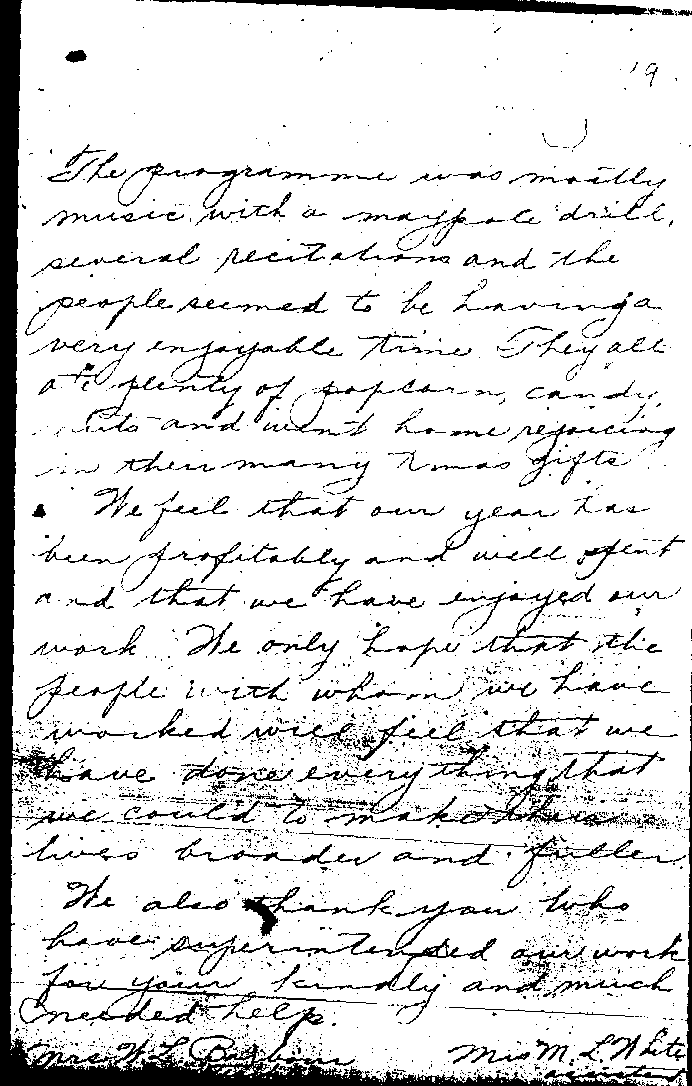 19
The programme was mostly
music with a maypole drill,
several recitations and the
people seemed to be having a
very enjoyable time They all
ate plenty of popcorn, candy,
nuts and went home rejoicing
in their many Xmas gifts
We feel that our year has
been profitably and well spent
and that we have enjoyed our
work We only hope that the
people with whom we have
worked will feel that we
have done everything that
we could to make their
lives broader and fuller.
We also thank you who
have superintended our work
for your kindly and much
needed help.
Mrs W. L. Mrs M. L. White
assistant